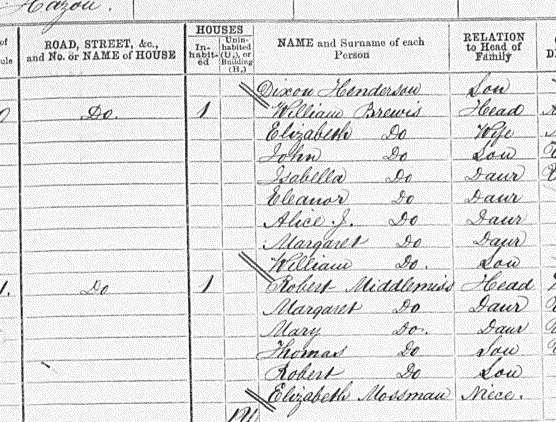 Hazon.
HOUSES
of
ule
ROAD, STREET, &c.,
and No. or NAME of HOUSE
In-
habit-
ed
Unin-
habited
(U.), or
Building
(B.)
NAME and Surname of each
Person
RELATION
to Head of
Family
Dixon Henderson Son
0 Do. 1 William Brewis Head
Elizabeth Do Wife
John Do Son
Isabella Do Daur
Eleanor Do Daur
Alice J. Do Daur
Margaret Do Daur
William Do. Son
1. Do 1 Robert Middlemiss Head
Margaret Do Daur
Mary Do. Daur
Thomas Do Son
Robert Do Son
Elizabeth Mossman Niece.